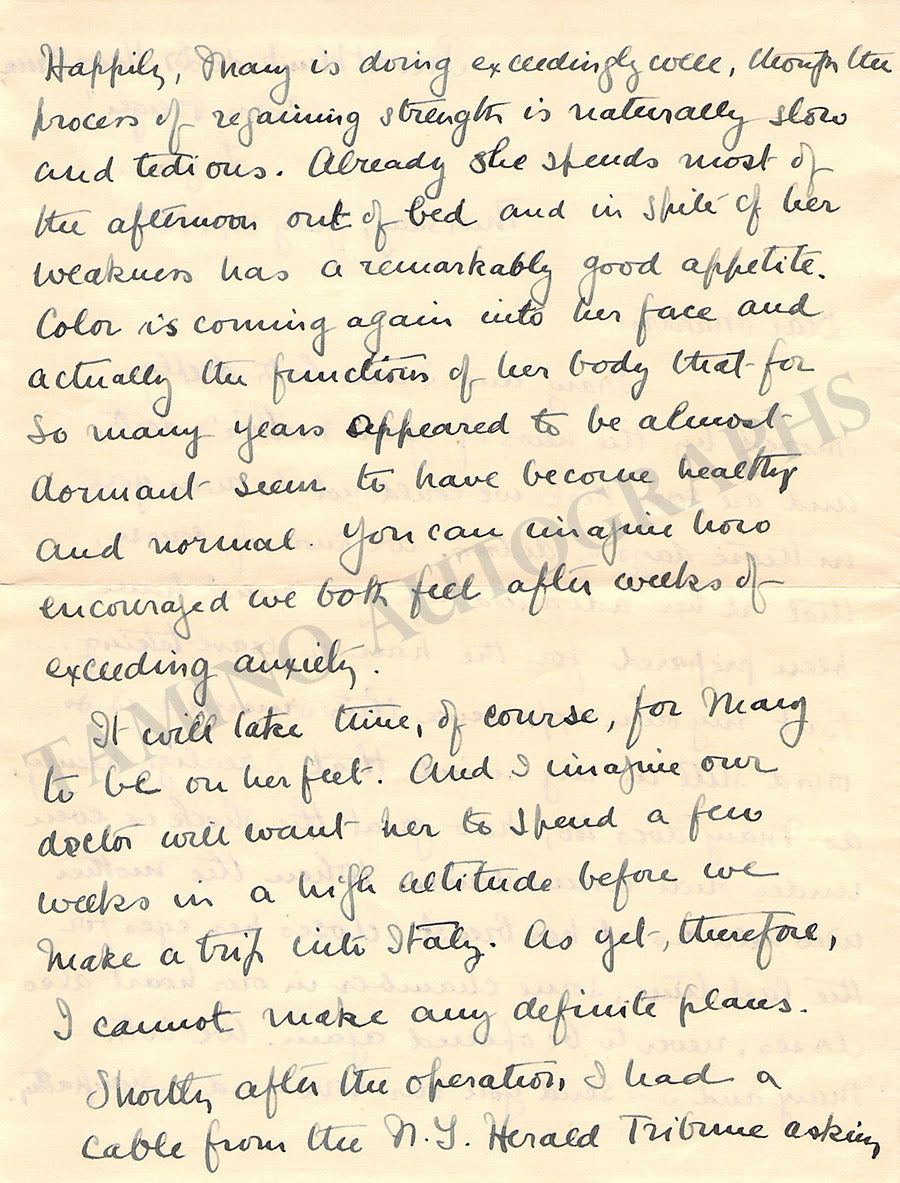 Happily, Mary is doing exceedingly well, though the
process of regaining strength is naturally slow
and tedious. Already she spends most of
the afternoon out of bed and in spite of her
weakness has a remarkably good appetite.
Color is coming again into her face and
actually the functions of her body that for
so many years appeared to be almost
dormant seem to have become healthy
and normal. You can imagine how
encouraged we both feel after weeks of
exceeding anxiety.
It will take time, of course, for Mary
to be on her feet. And I imagine our
doctor will want her to spend a few
weeks in a high altitude before we
make a trip into Italy. As yet, therefore,
I cannot make any definite plans.
Shortly after the operation, I had a
cable from the N.Y. Herald Tribune asking
TAMINO AUTOGRAPHS